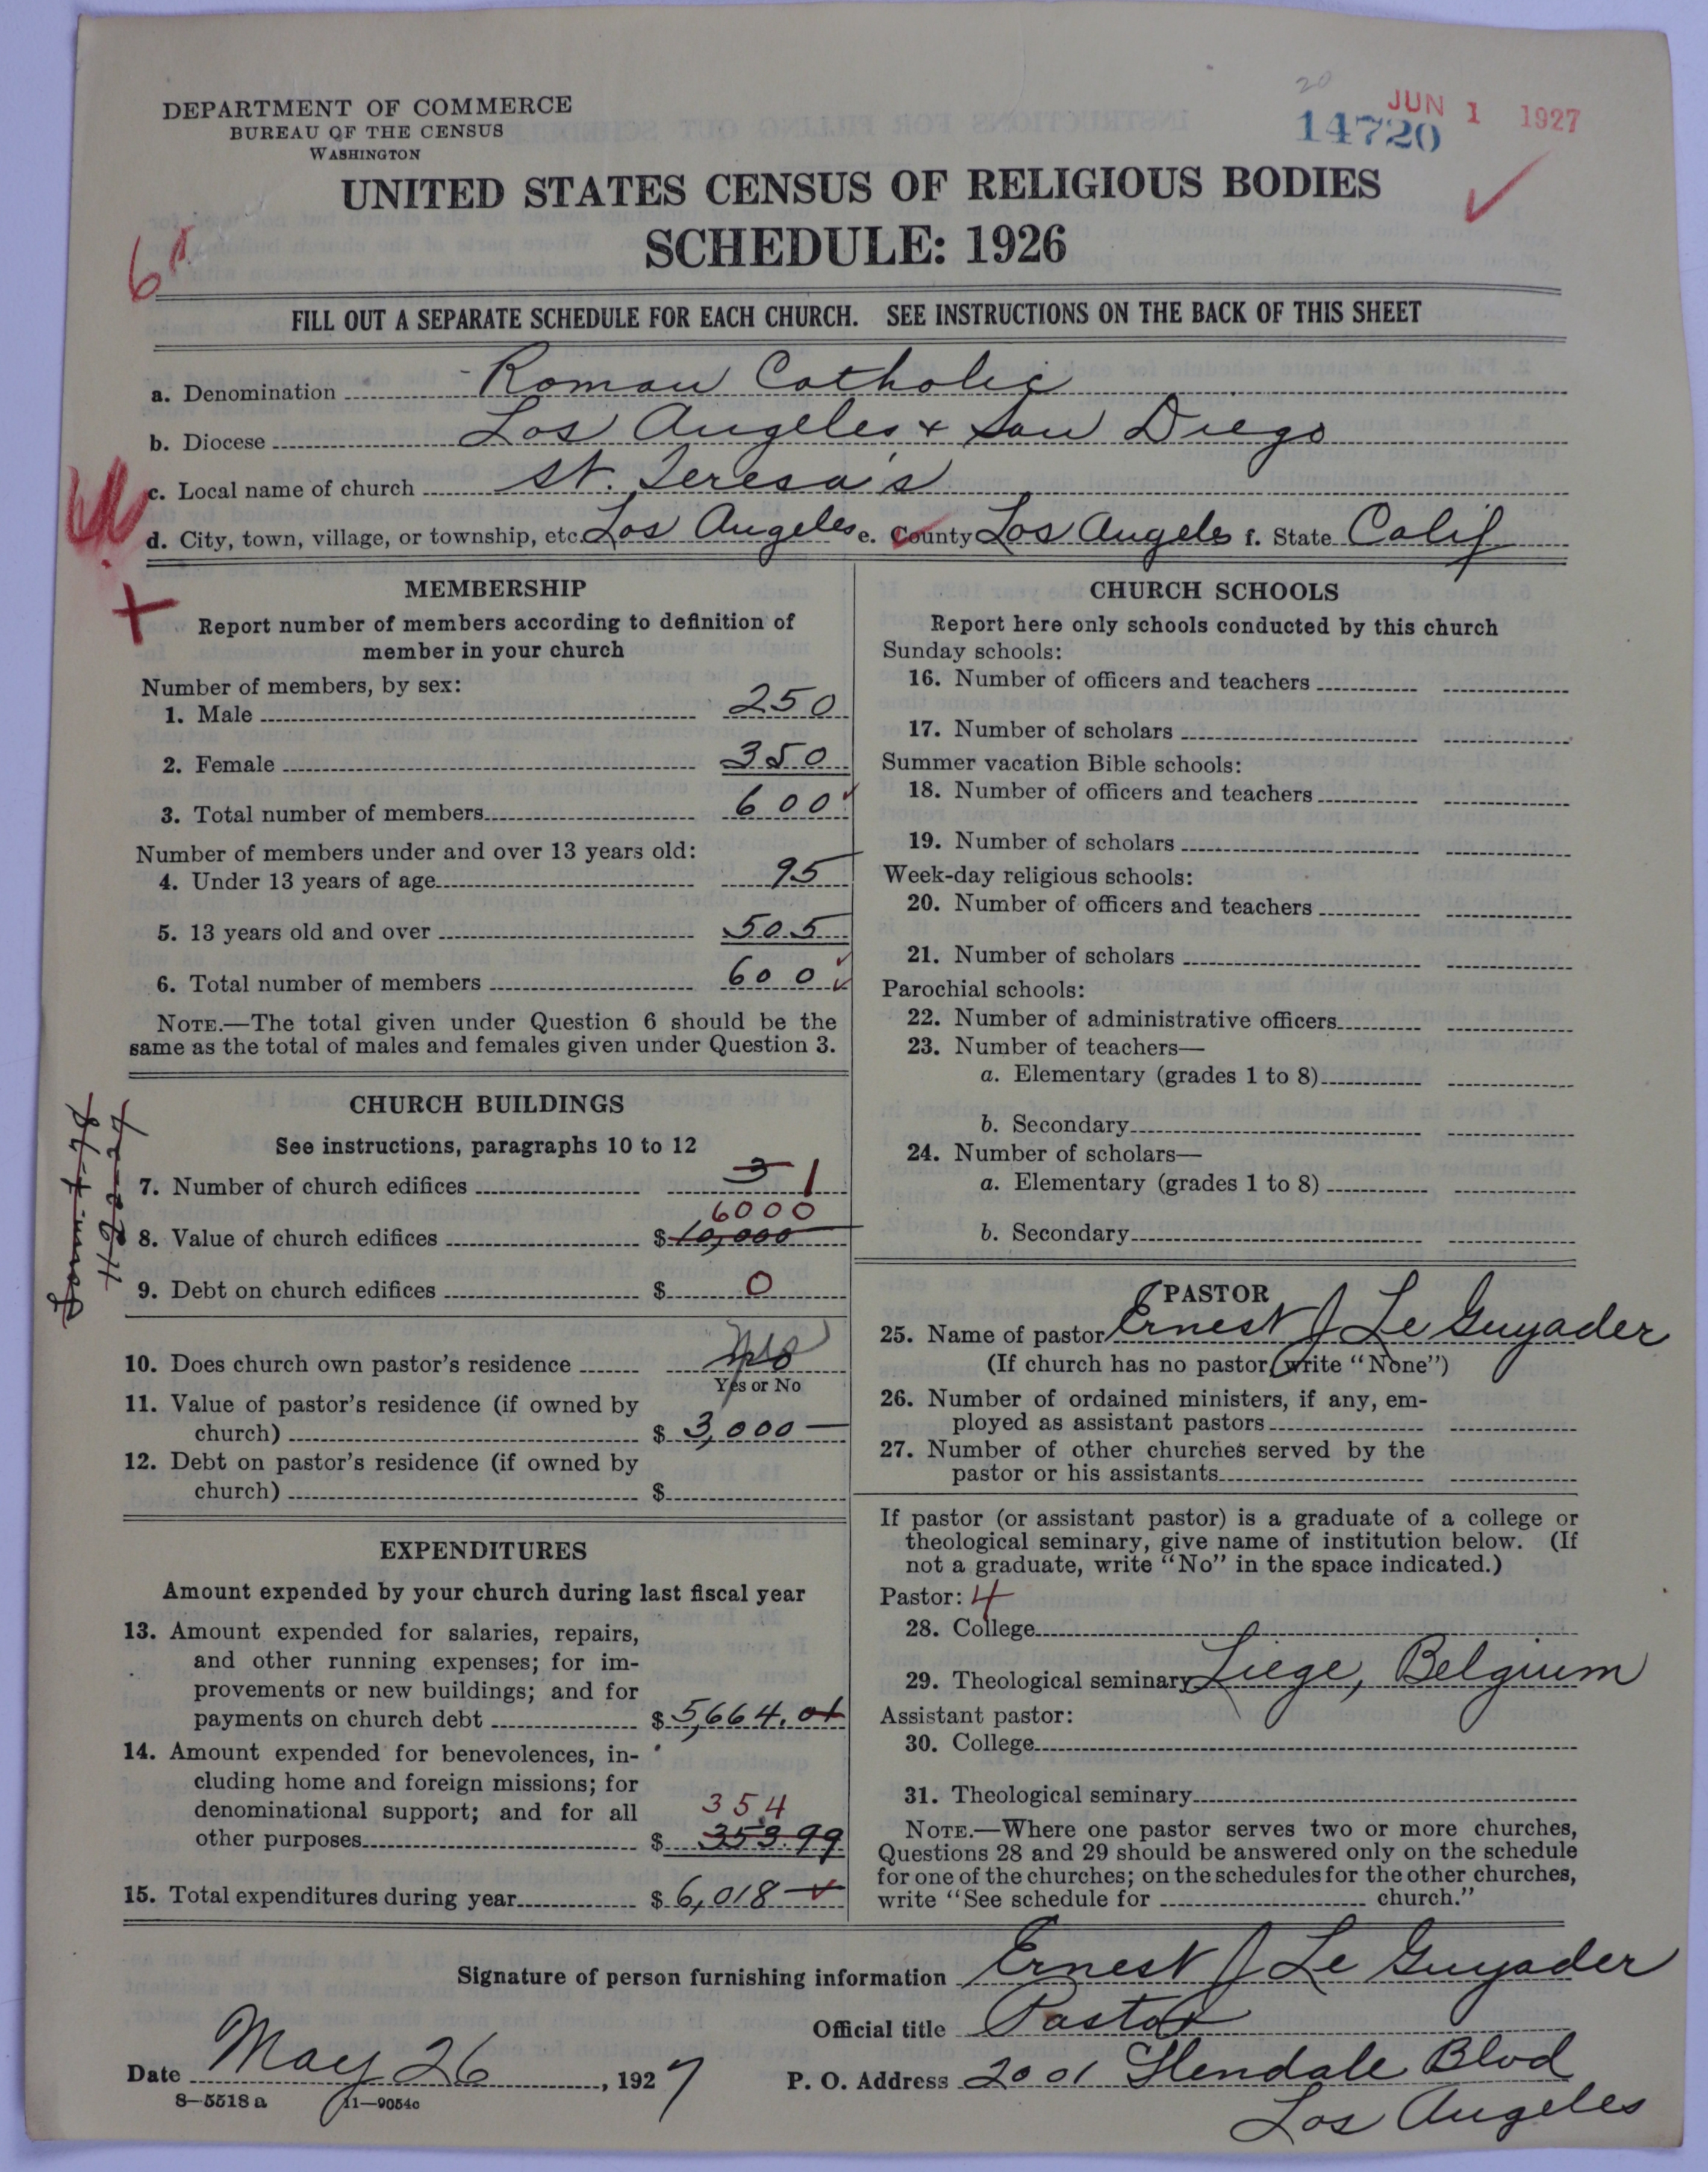 20
JUN 1 1927
14720
DEPARTMENT OF COMMERCE
BUREAU OF THE CENSUS
WASHINGTON
UNITED STATES CENSUS OF RELIGIOUS BODIES
SCHEDULE: 1926
6
FILL OUT A SEPARATE SCHEDULE FOR EACH CHURCH. SEE INSTRUCTIONS ON THE BACK OF THIS SHEET
a. Denomination Roman Catholic
b. Diocese Los Angeles & San Diego
c. Local name of church St. Teresa's
d. City, town, village, or township, etc. Los Angeles e. County Los Angeles f. State Calif
MEMBERSHIP
Report number of members according to definition of
member in your church
Number of members, by sex:
1. Male 250
2. Female 350
3. Total number of members 600
Number of members under and over 13 years old:
4. Under 13 years of age 95
5. 13 years old and over 505
6. Total number of members 600
NOTE.—The total given under Question 6 should be the
same as the total of males and females given under Question 3.
CHURCH BUILDINGS
See instructions, paragraphs 10 to 12
7. Number of church edifices 3 1
6000
8. Value of church edifices $ 10,000
9. Debt on church edifices $ 0
10. Does church own pastor's residence
Yes or No
11. Value of pastor's residence (if owned by
church) $ 3,000—
12. Debt on pastor's residence (if owned by
church) $
EXPENDITURES
Amount expended by your church during last fiscal year
13. Amount expended for salaries, repairs,
and other running expenses; for im-
provements or new buildings; and for
payments on church debt $ 5,664.01
14. Amount expended for benevolences, in-
cluding home and foreign missions; for
denominational support; and for all 354
other purposes $ 353.99
15. Total expenditures during year $ 6,018—
CHURCH SCHOOLS
Report here only schools conducted by this church
Sunday schools:
16. Number of officers and teachers
17. Number of scholars
Summer vacation Bible schools:
18. Number of officers and teachers
19. Number of scholars
Week-day religious schools:
20. Number of officers and teachers
21. Number of scholars
Parochial schools:
22. Number of administrative officers
23. Number of teachers—
a. Elementary (grades 1 to 8)
b. Secondary
24. Number of scholars—
a. Elementary (grades 1 to 8)
b. Secondary
PASTOR
25. Name of pastor Ernest J Le Guyader
(If church has no pastor, write "None")
26. Number of ordained ministers, if any, em-
ployed as assistant pastors
27. Number of other churches served by the
pastor or his assistants
If pastor (or assistant pastor) is a graduate of a college or
theological seminary, give name of institution below. (If
not a graduate, write "No" in the space indicated.)
Pastor: 4
28. College
29. Theological seminary Liege, Belgium
Assistant pastor:
30. College
31. Theological seminary
NOTE.—Where one pastor serves two or more churches,
Questions 28 and 29 should be answered only on the schedule
for one of the churches; on the schedules for the other churches,
write "See schedule for church."
Signature of person furnishing information Ernest J Le Guyader
Official title Pastor
Date May 26, 1927
P. O. Address 2001 Glendale Blvd
Los Angeles
8—5518 a 11—9054c